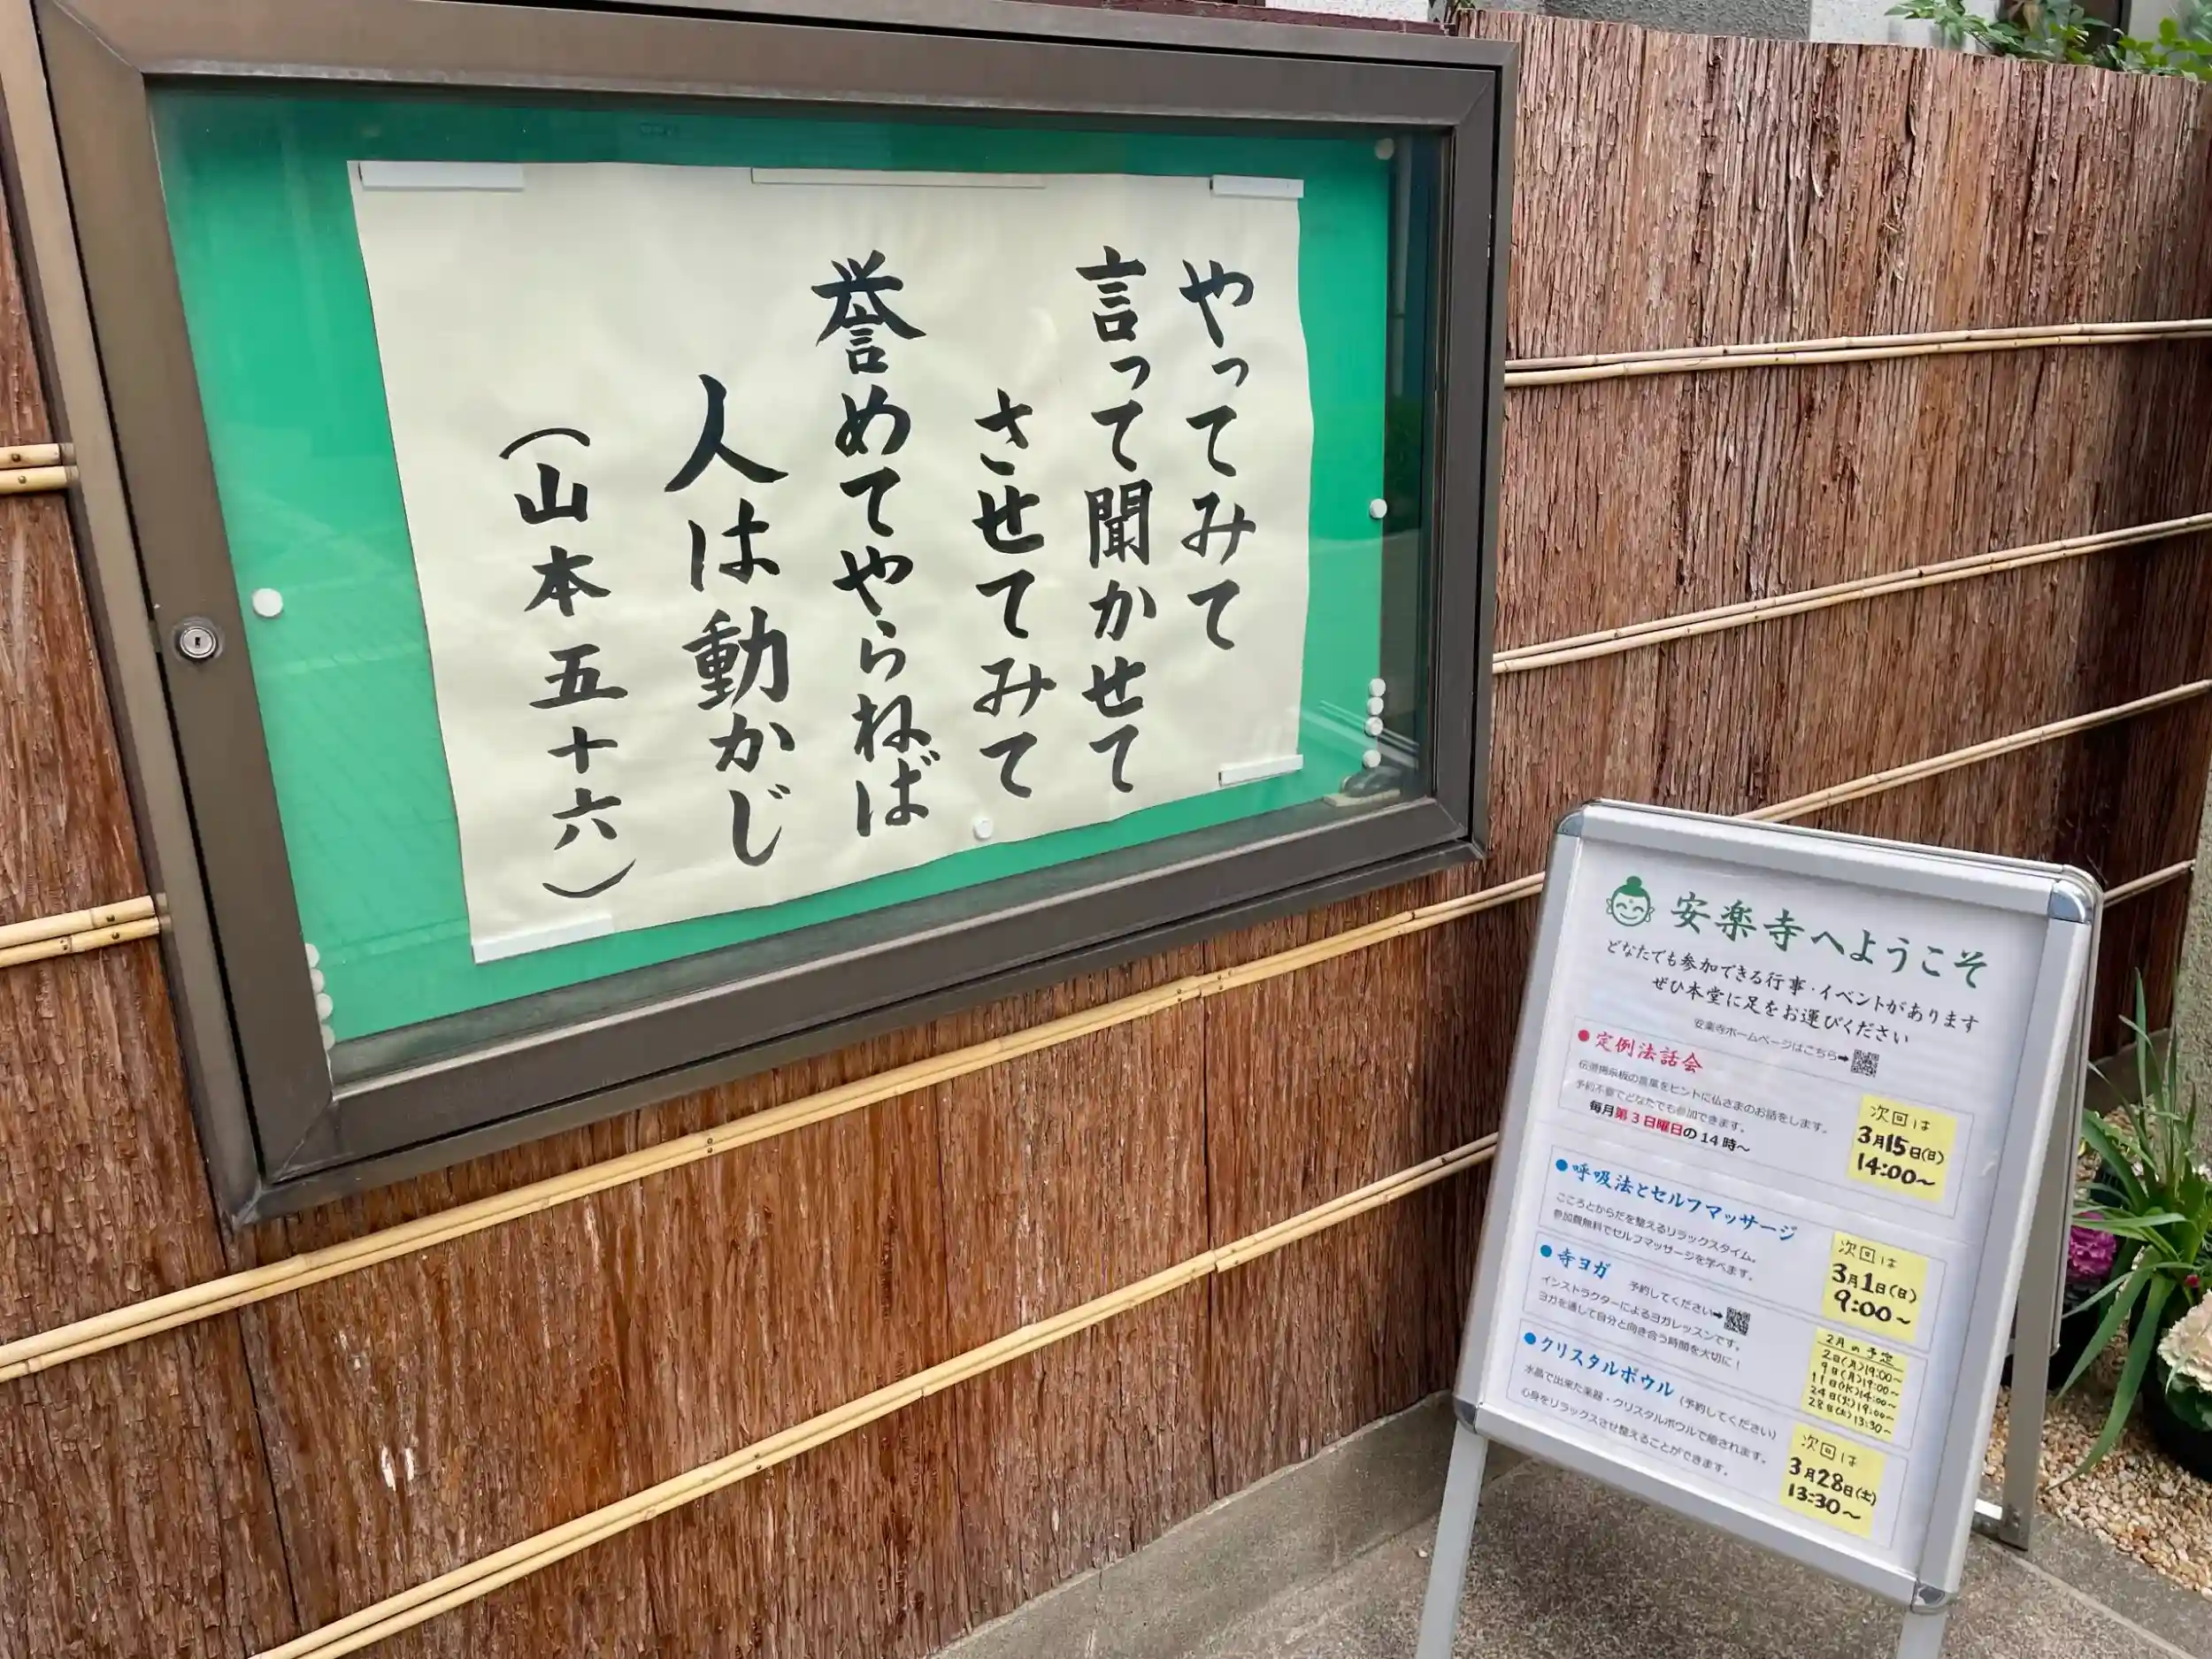 やってみて
言って聞かせて
させてみて
誉めてやらねば
人は動かじ
（山本五十六）
安楽寺へようこそ
どなたでも参加できる行事・イベントがあります
ぜひ本堂に足をお運びください
安楽寺ホームページはこちら➡
●定例法話会
伝道掲示板の言葉をヒントに仏さまのお話をします。
予約不要でどなたでも参加できます。
毎月第3日曜日の14時～
次回は
3月15日(日)
14:00～
●呼吸法とセルフマッサージ
こころとからだを整えるリラックスタイム。
参加費無料でセルフマッサージを学べます。
次回は
3月1日(日)
9:00～
●寺ヨガ 予約してください➡
インストラクターによるヨガレッスンです。
ヨガを通して自分と向き合う時間を大切に！
2月の予定
2日(月)19:00～
9日(月)19:00～
11日(水)14:00～
24日(火)19:00～
28日(土)13:30～
●クリスタルボウル（予約してください）
水晶で出来た楽器・クリスタルボウルで癒されます。
心身をリラックスさせ整えることができます。
次回は
3月28日(土)
13:30～